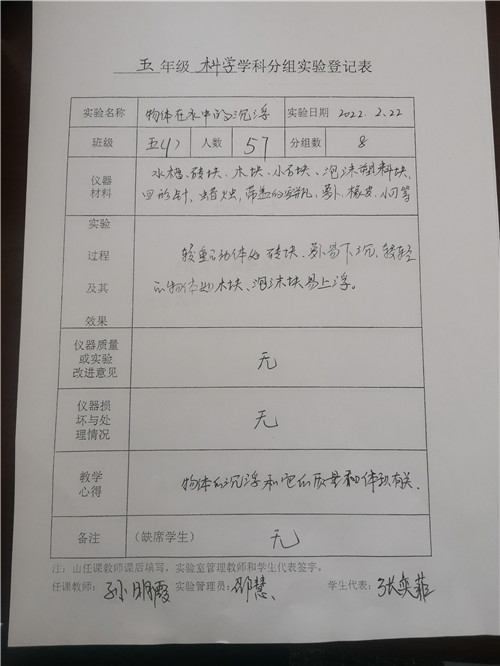 五年级 科学学科分组实验登记表
实验名称 物体在水中的沉浮 实验日期 2022.2.22
班级 五(4) 人数 57 分组数 8
仪器材料 水槽、砖块、木块、小石块、泡沫塑料块,
回形针,蜡烛,带盖的空瓶,萝卜、橡皮、小刀等
实验
过程
及其
效果
较重的物体如砖块、萝卜易下沉、较轻
的物体如木块、泡沫块易上浮。
仪器质量
或实验
改进意见
无
仪器损
坏与处
理情况
无
教学
心得
物体的沉浮和它的质量和体积有关.
备注 (缺席学生) 无
注:由任课教师课后填写,实验室管理教师和学生代表签字。
任课教师: 孙明霞 实验管理员: 邵慧 学生代表: 张奕菲